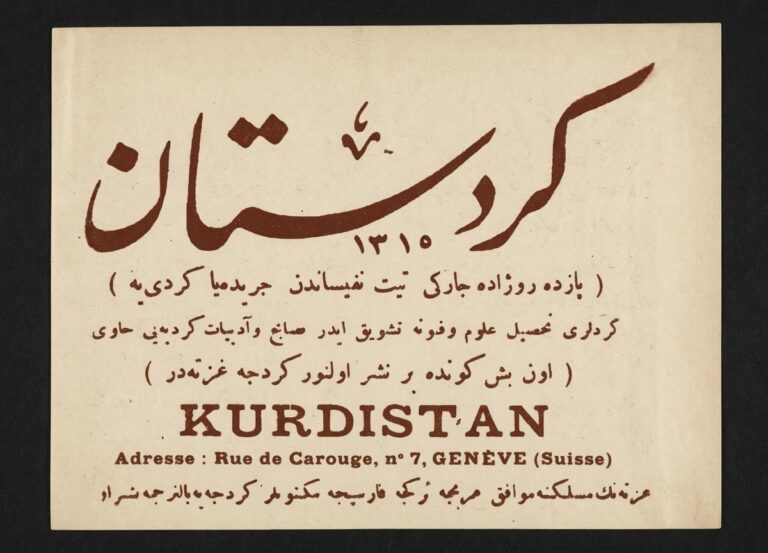 كردستان
١٣١٥
( پازده روژاده جاركى تيت نفيساندن جريده‌يا كردى‌يه )
كردلرى تحصيل علوم وفنونه تشويق ايدر نصايح وآدبيات كرديه‌يى حاوى
( اون بش كونده بر نشر اولنور كردجه غزته‌در )
KURDISTAN
Adresse : Rue de Carouge, nº 7, GENÈVE (Suisse)
غزته‌نك مسلكنه موافق عربجه تركجه فارسيجه مكتوبلر كردجه‌يه بالترجمه نشر